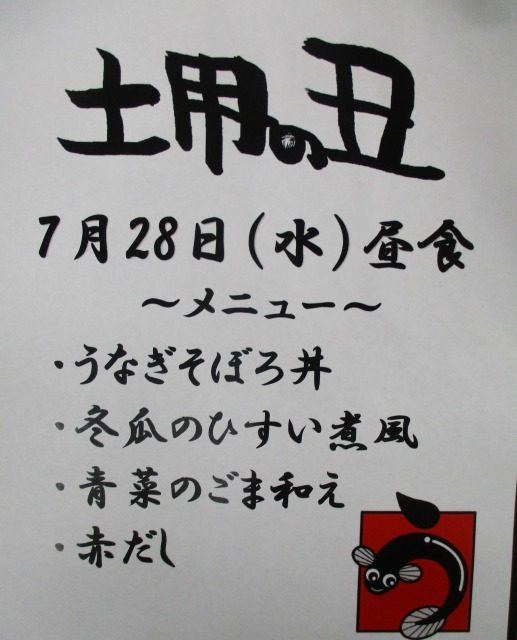 土用の丑
7月28日(水)昼食
～メニュー～
・うなぎそぼろ丼
・冬瓜のひすい煮風
・青菜のごま和え
・赤だし
う